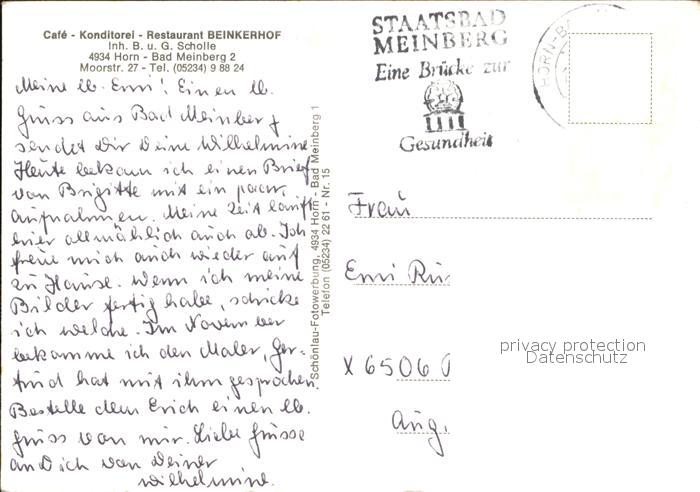 Café - Konditorei - Restaurant BEINKERHOF
Inh. B. u. G. Scholle
4934 Horn - Bad Meinberg 2
Moorstr. 27 - Tel. (05234) 9 88 24
Meine lb. Erni! Einen lb.
Gruss aus Bad Meinberg
sendet Dir Deine Wilhelmine.
Heute bekam ich einen Brief
von Brigitte mit ein paar
Aufnahmen. Meine Zeit läuft
hier allmählich auch ab. Ich
freue mich auch wieder auf
zu Hause. Wenn ich meine
Bilder fertig habe, schicke
ich welche. Im November
bekomme ich den Maler, Ger-
trud hat mit ihm gesprochen.
Bestelle dem Erich einen lb.
Gruss von mir. Liebe Grüsse
an Dich von Deiner
Wilhelmine.
Schönlau-Fotowerbung, 4934 Horn - Bad Meinberg 1
Telefon (05234) 22 61 - Nr. 15
STAATSBAD
MEINBERG
Eine Brücke zur
Gesundheit
HORN-BA
Frau
Erni
X 6506
Aug.
privacy protection
Datenschutz